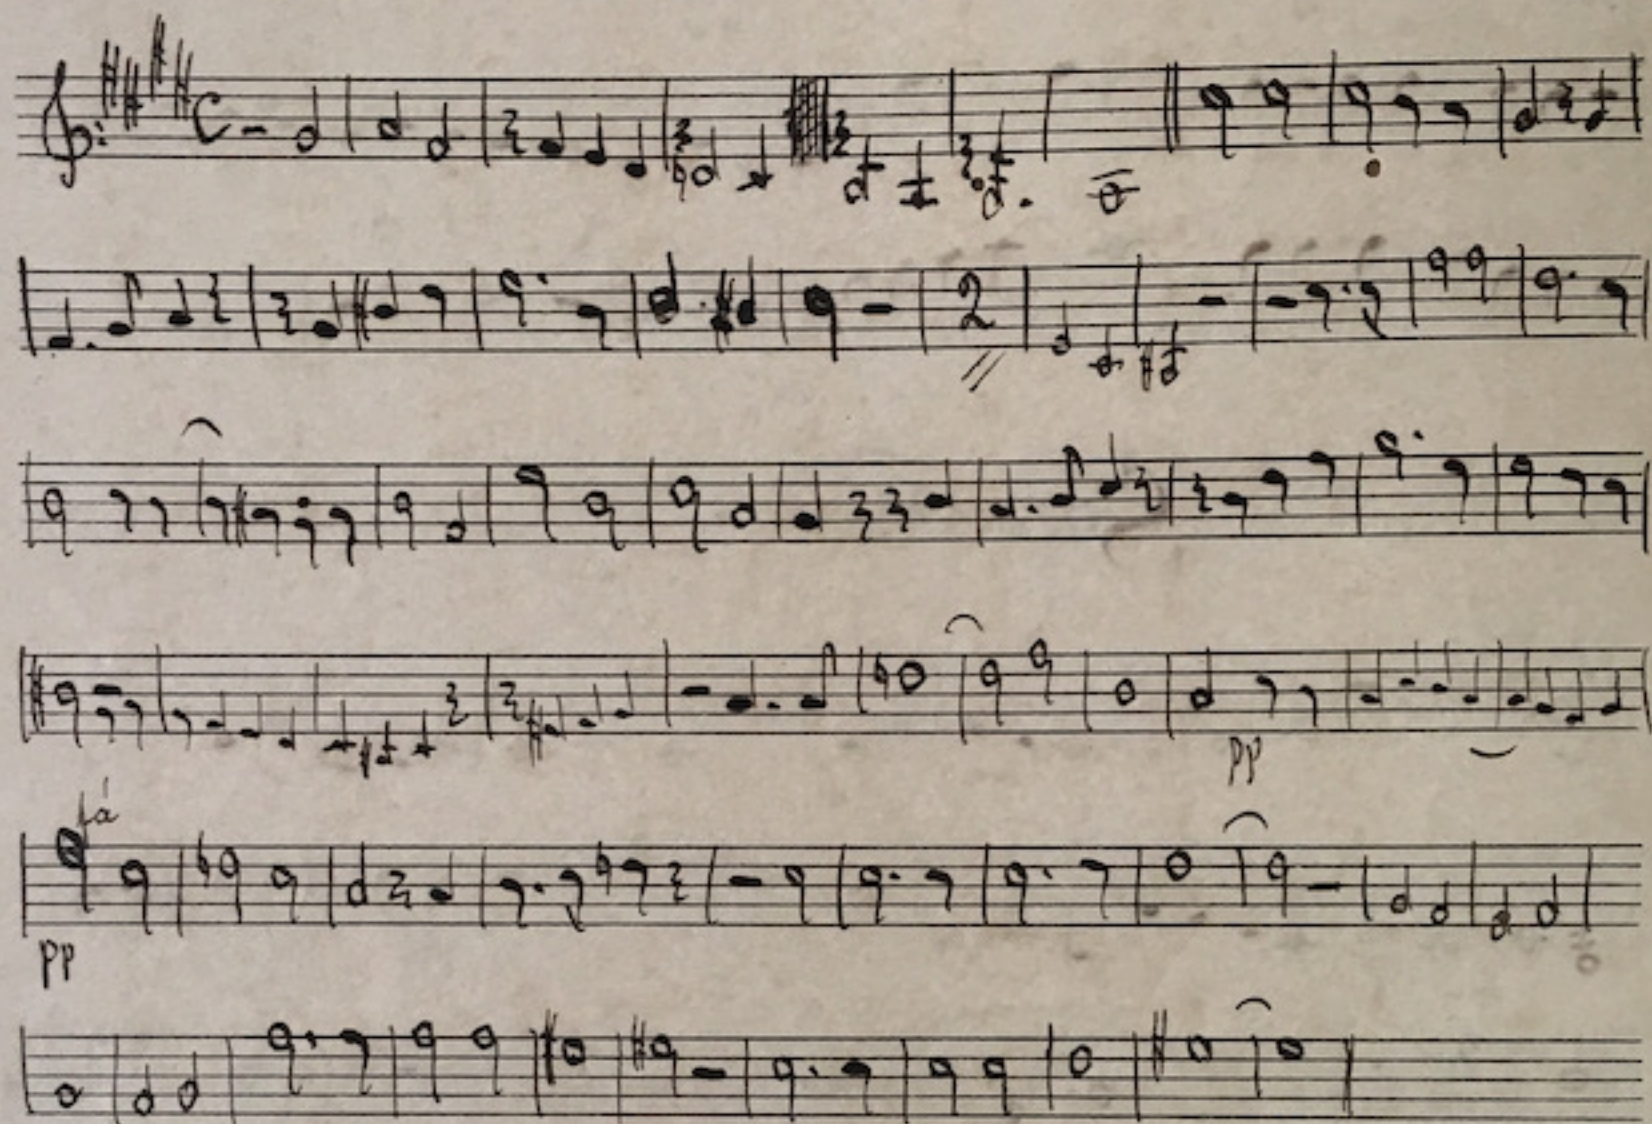 2
pp
fá
pp